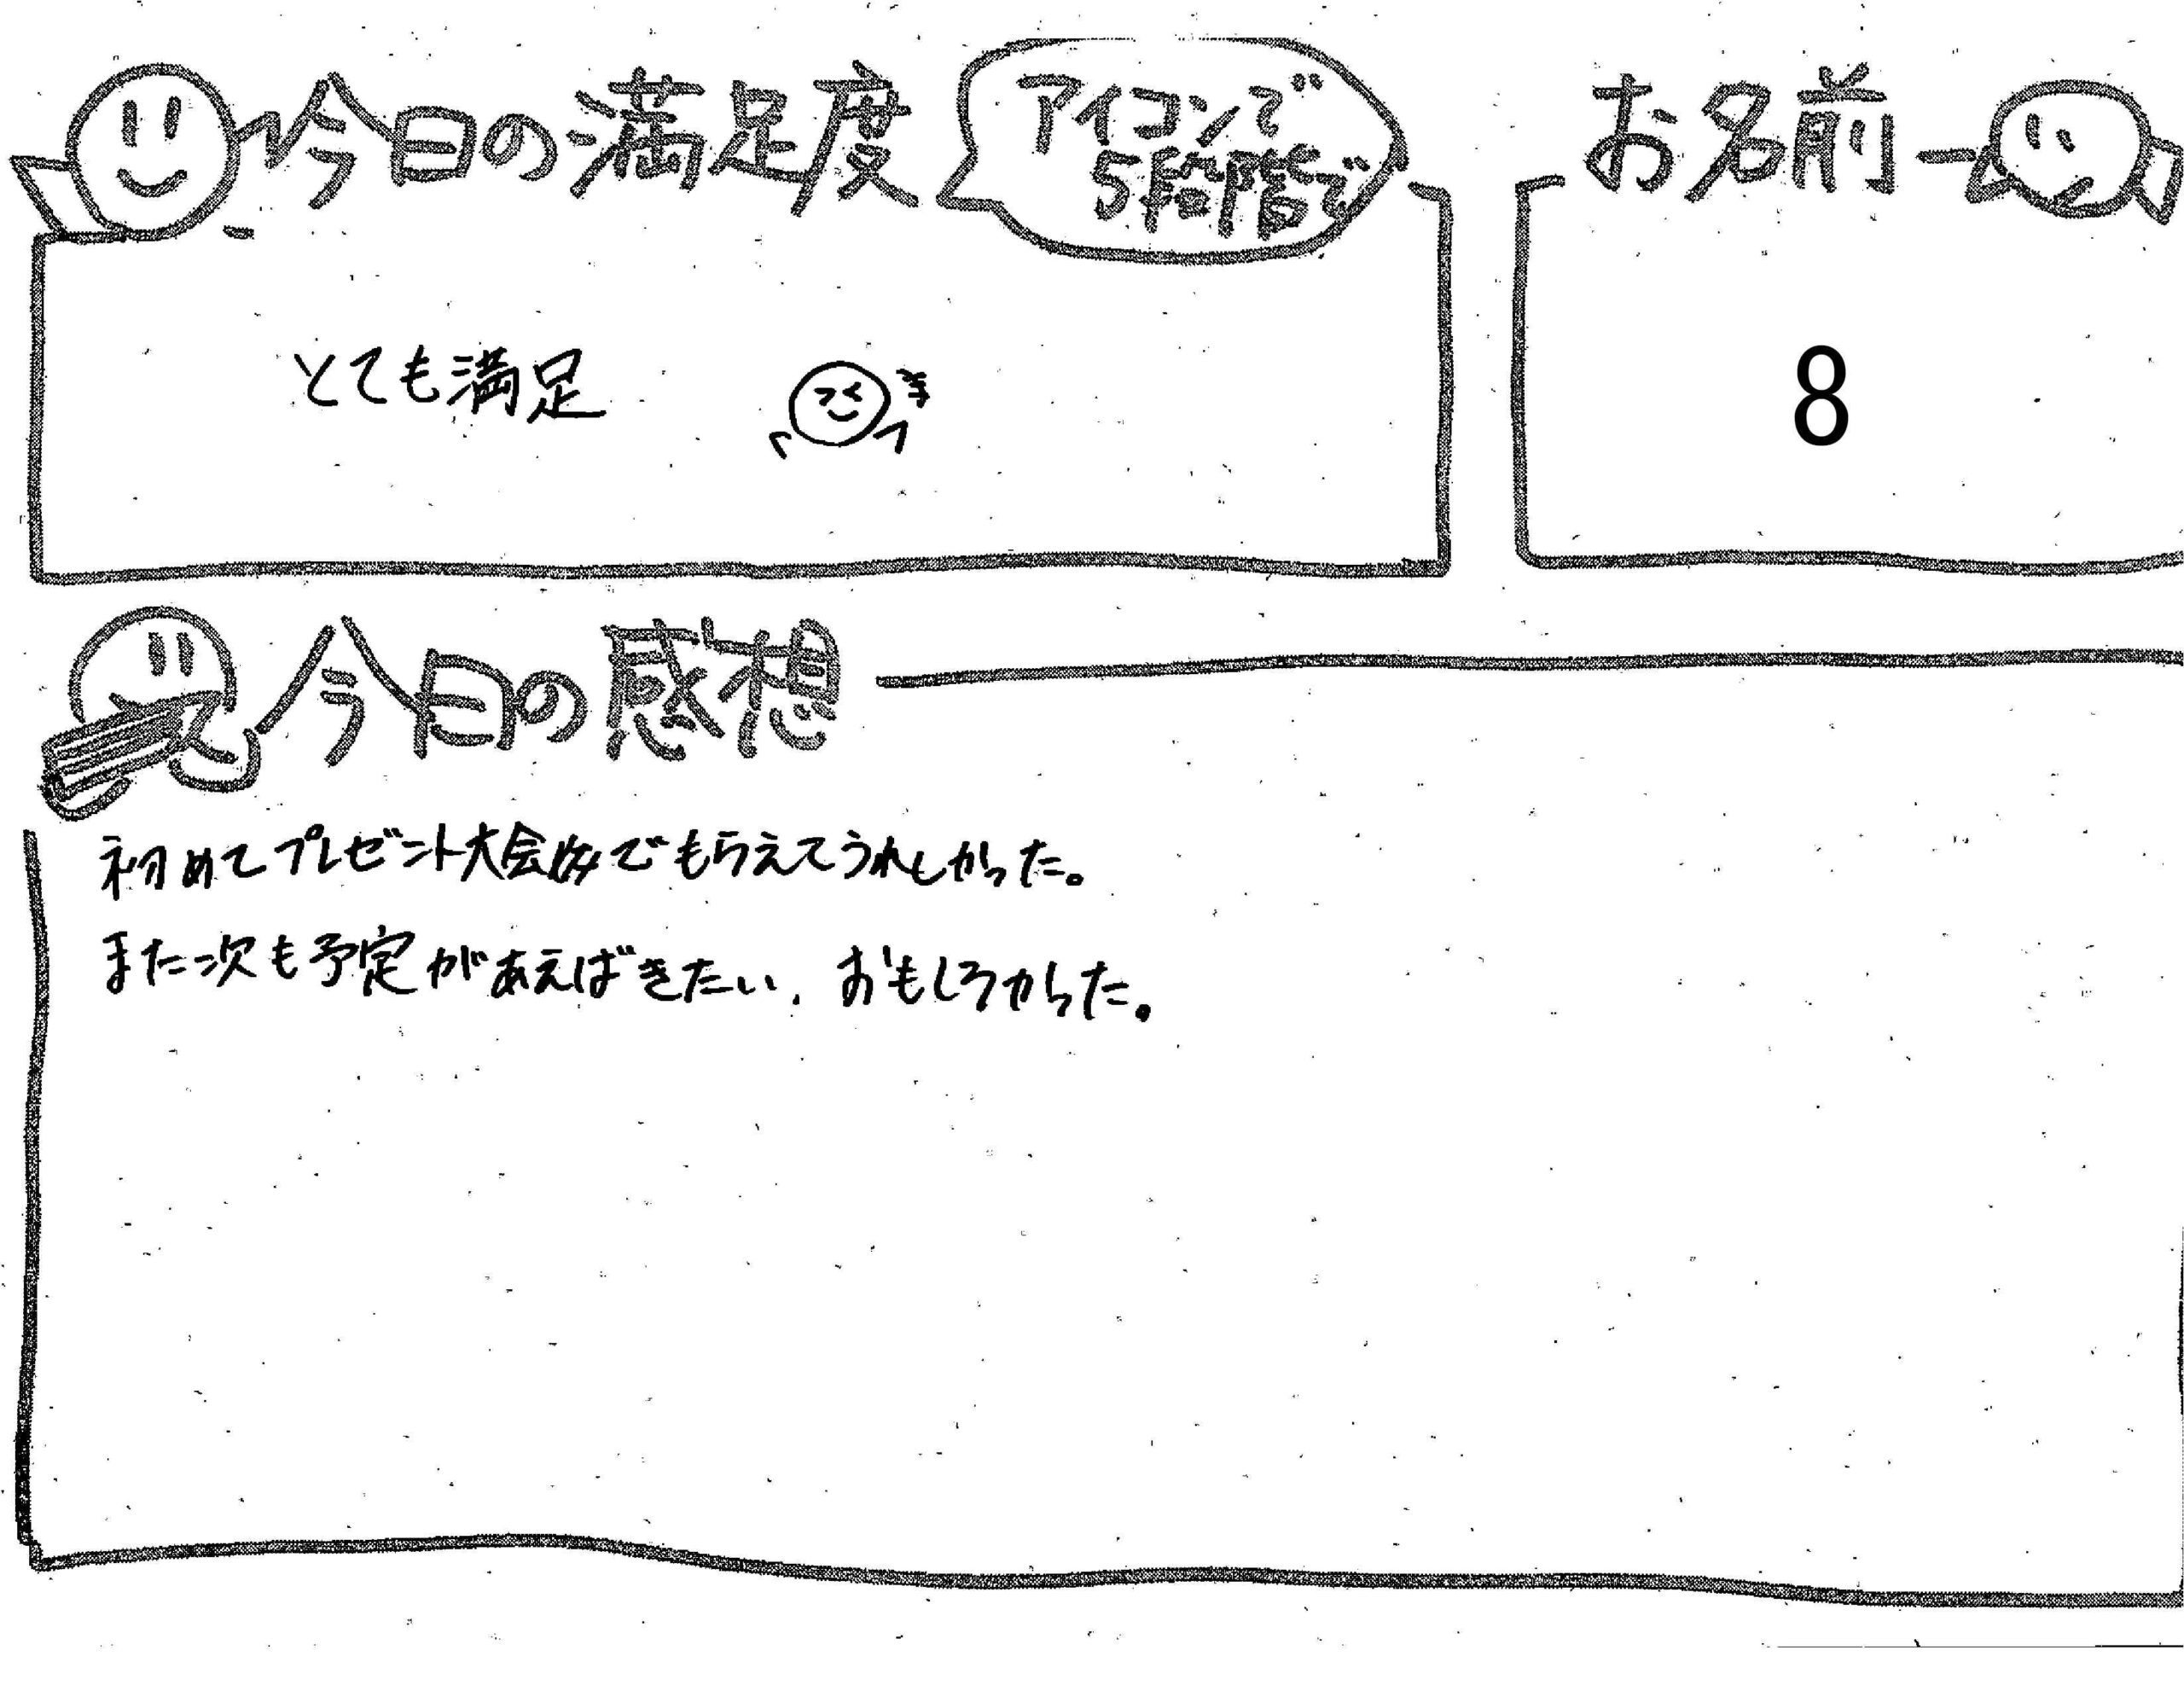 今日の満足度
アイコンで
5段階で
お名前
とても満足
8
今日の感想
初めてプレゼント大会でもらえてうれしかった。
また次も予定があえばきたい、おもしろかった。